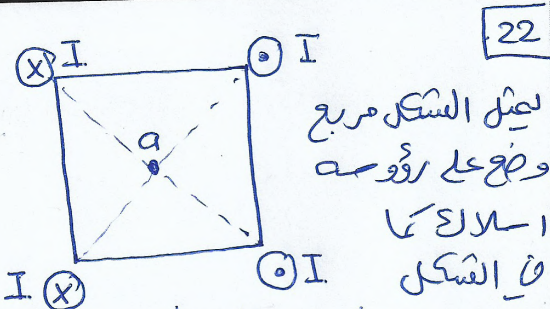 22
يمثل الشكل مربع
وضع على رؤوسه
اسلاك كما
في الشكل
X I
I
a
I X
I